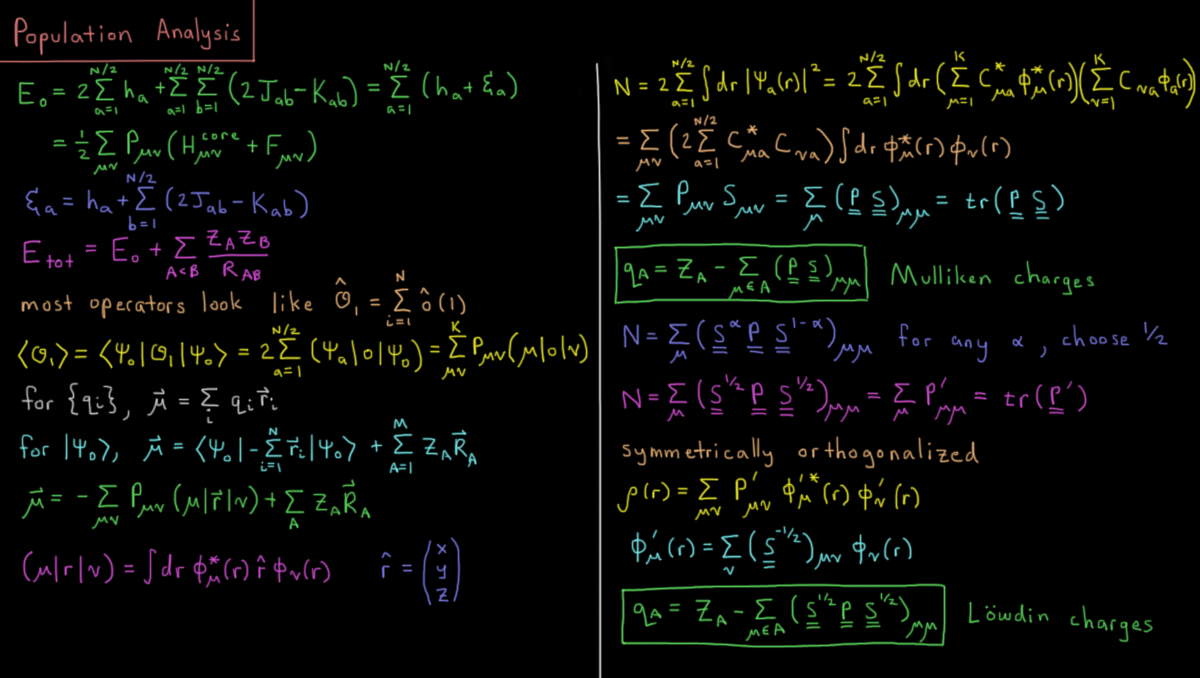 Population Analysis
E₀ = 2 Σ_{a=1}^{N/2} h_a + Σ_{a=1}^{N/2} Σ_{b=1}^{N/2} (2J_{ab} − K_{ab}) = Σ_{a=1}^{N/2} (h_a + ξ_a)
= ½ Σ_{μν} P_{μν} (H_{μν}^{core} + F_{μν})
ξ_a = h_a + Σ_{b=1}^{N/2} (2J_{ab} − K_{ab})
E_{tot} = E₀ + Σ_{A<B} Z_A Z_B / R_{AB}
most operators look like Ô₁ = Σ_{i=1}^{N} ô(1)
⟨O₁⟩ = ⟨Ψ₀|O₁|Ψ₀⟩ = 2 Σ_{a=1}^{N/2} (Ψ_a|o|Ψ₀) = Σ_{μν}^{K} P_{μν} (μ|o|ν)
for {q_i}, μ⃗ = Σ_i q_i r⃗_i
for |Ψ₀⟩, μ⃗ = ⟨Ψ₀| −Σ_{i=1}^{N} r⃗_i |Ψ₀⟩ + Σ_{A=1}^{M} Z_A R⃗_A
μ⃗ = − Σ_{μν} P_{μν} (μ|r⃗|ν) + Σ_A Z_A R⃗_A
(μ|r|ν) = ∫dr φ_μ^*(r) r̂ φ_ν(r) r̂ = (x y z)
N = 2 Σ_{a=1}^{N/2} ∫dr |Ψ_a(r)|² = 2 Σ_{a=1}^{N/2} ∫dr (Σ_{μ=1}^{K} C_{μa}^* φ_μ^*(r)) (Σ_{ν=1}^{K} C_{νa} φ_a(r))
= Σ_{μν} (2 Σ_{a=1}^{N/2} C_{μa}^* C_{νa}) ∫dr φ_μ^*(r) φ_ν(r)
= Σ_{μν} P_{μν} S_{μν} = Σ_μ (P S)_{μμ} = tr(P S)
q_A = Z_A − Σ_{μ∈A} (P S)_{μμ} Mulliken charges
N = Σ_μ (S^α P S^{1−α})_{μμ} for any α, choose ½
N = Σ_μ (S^{1/2} P S^{1/2})_{μμ} = Σ_μ P'_{μμ} = tr(P')
symmetrically orthogonalized
ρ(r) = Σ_{μν} P'_{μν} φ'_μ^*(r) φ'_ν(r)
φ'_μ(r) = Σ_ν (S^{−1/2})_{μν} φ_ν(r)
q_A = Z_A − Σ_{μ∈A} (S^{1/2} P S^{1/2})_{μμ} Löwdin charges